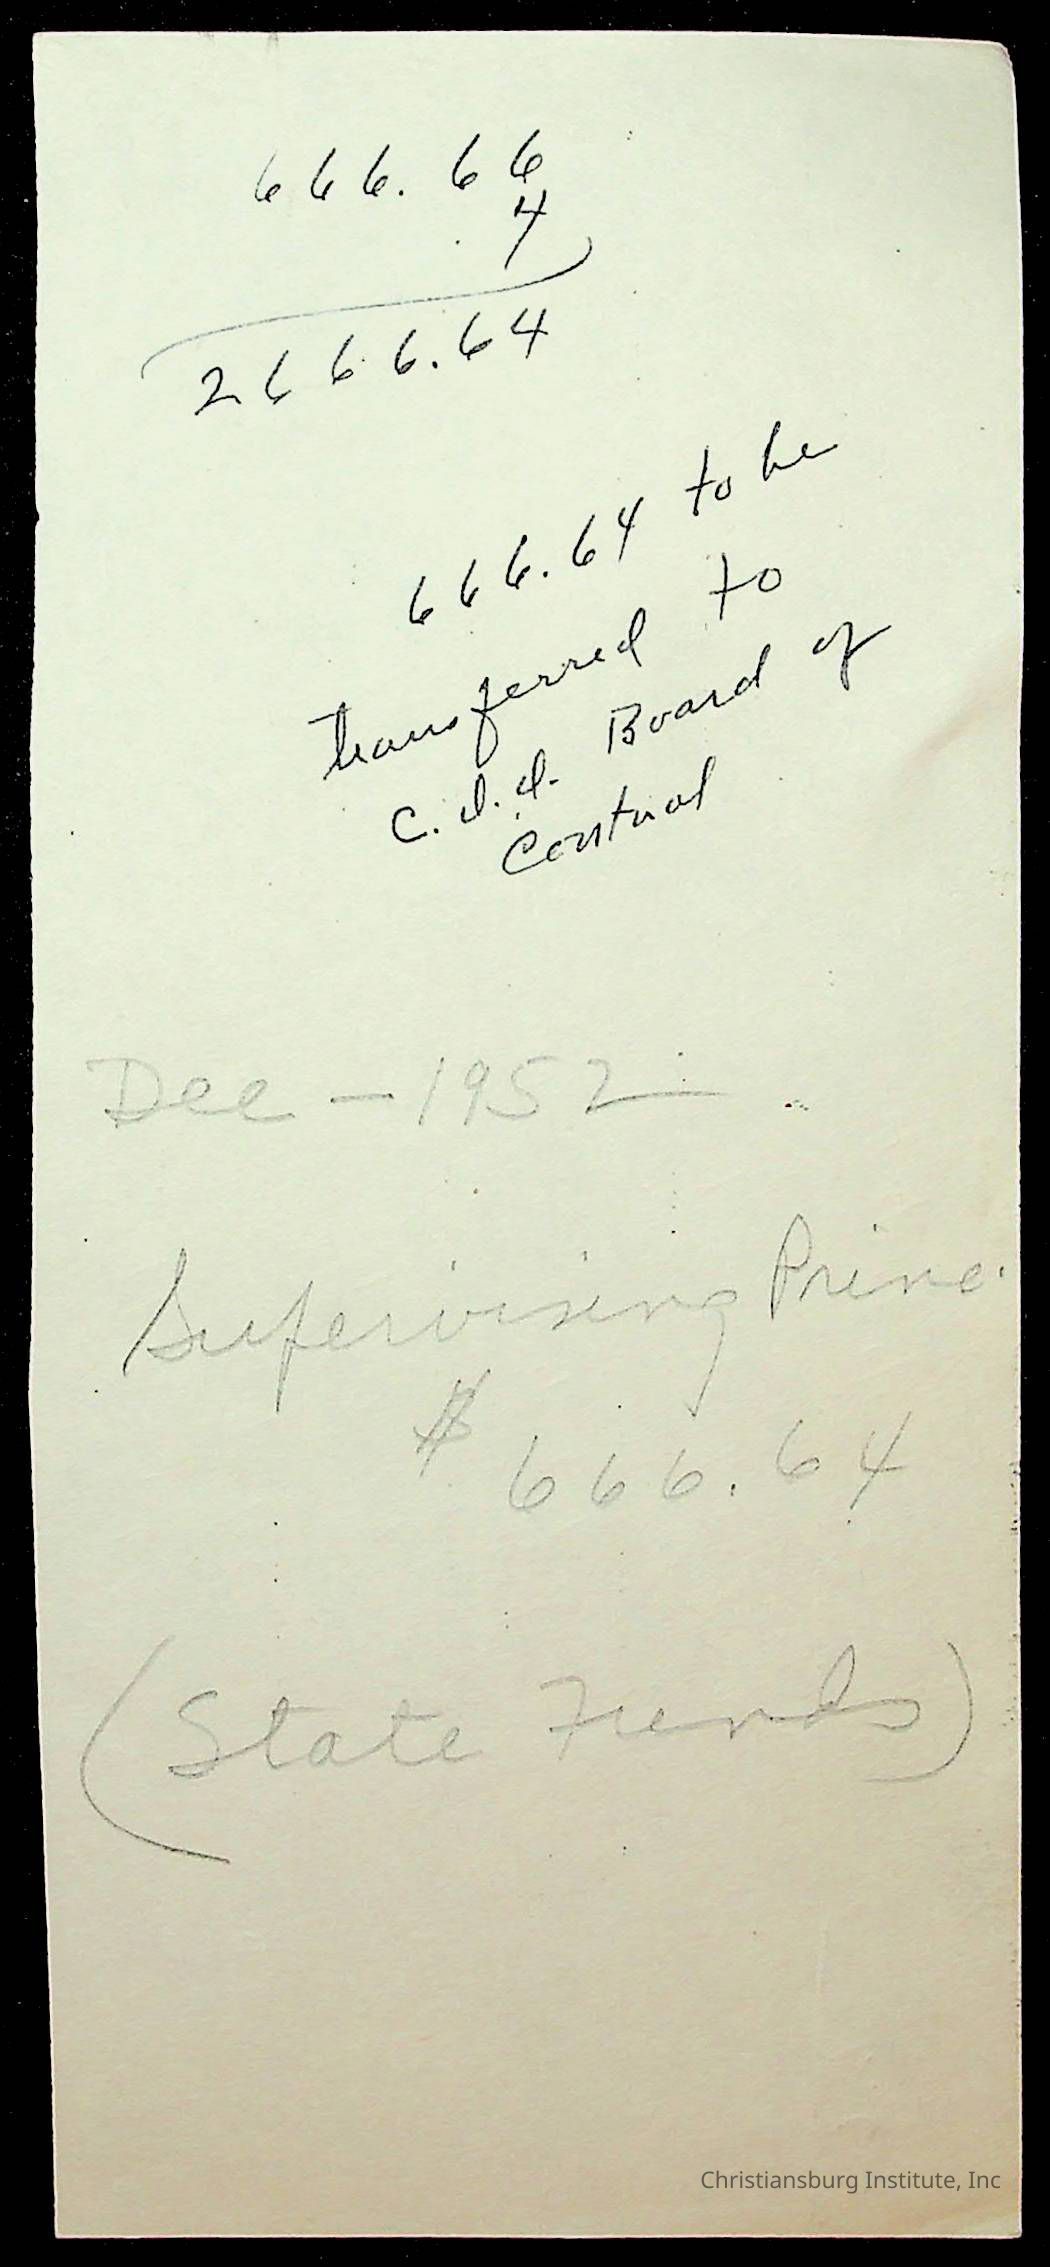 666.66
4
2666.64
666.64 to be
transferred to
C.I.I. Board of
Control
Dec - 1952
Supervising Princ.
$ 666.64
(State Funds)
Christiansburg Institute, Inc